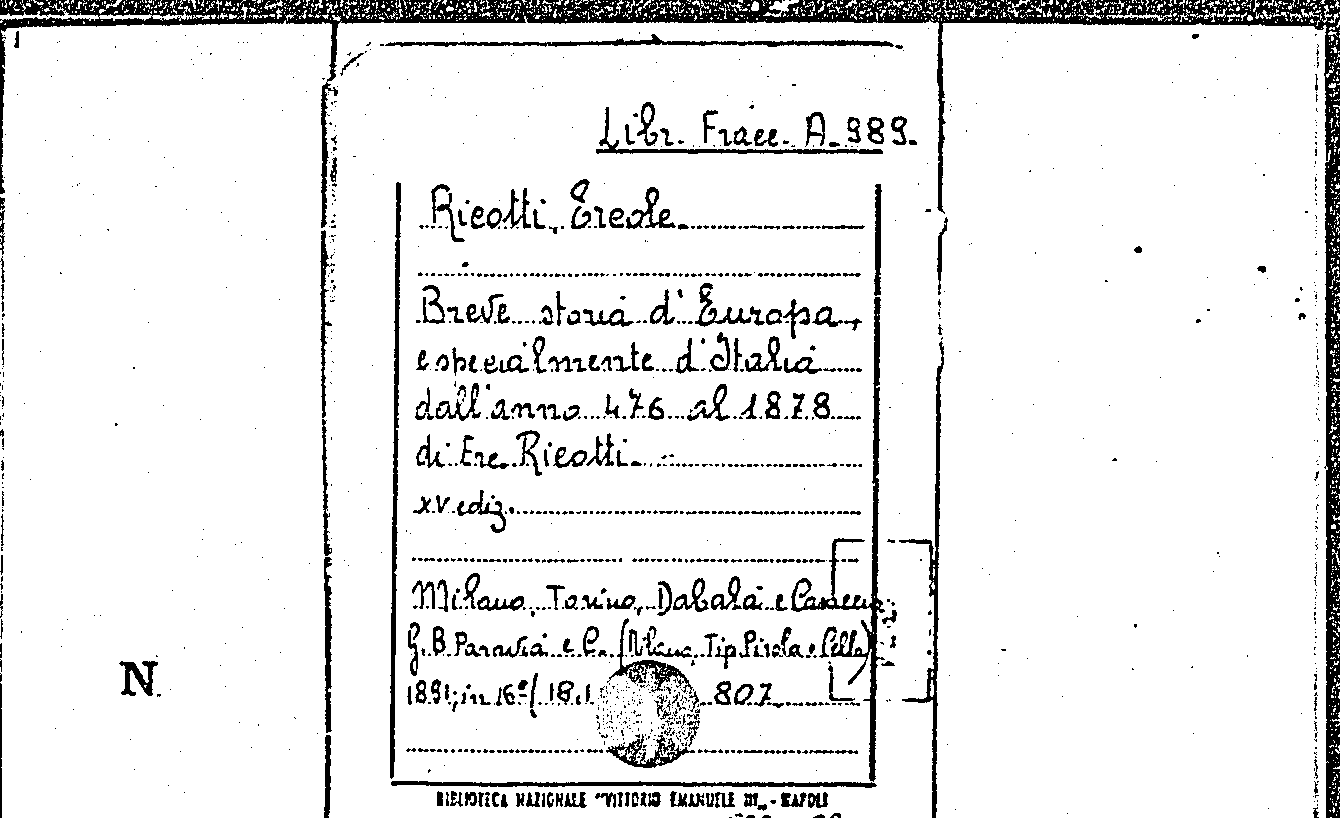 Libr. Fracc. A. 989.
Ricotti, Ercole.
Breve storia d'Europa,
especialmente d'Italia
dall'anno 476 al 1878
di Erc. Ricotti.
XV ediz.
Milano, Torino, Dabalà e
G. B. Paravia e C. (Milano, Tip. Pirola e Cella)
1891; in 16º 807
N
BIBLIOTECA NAZIONALE "VITTORIO EMANUELE III" - NAPOLI